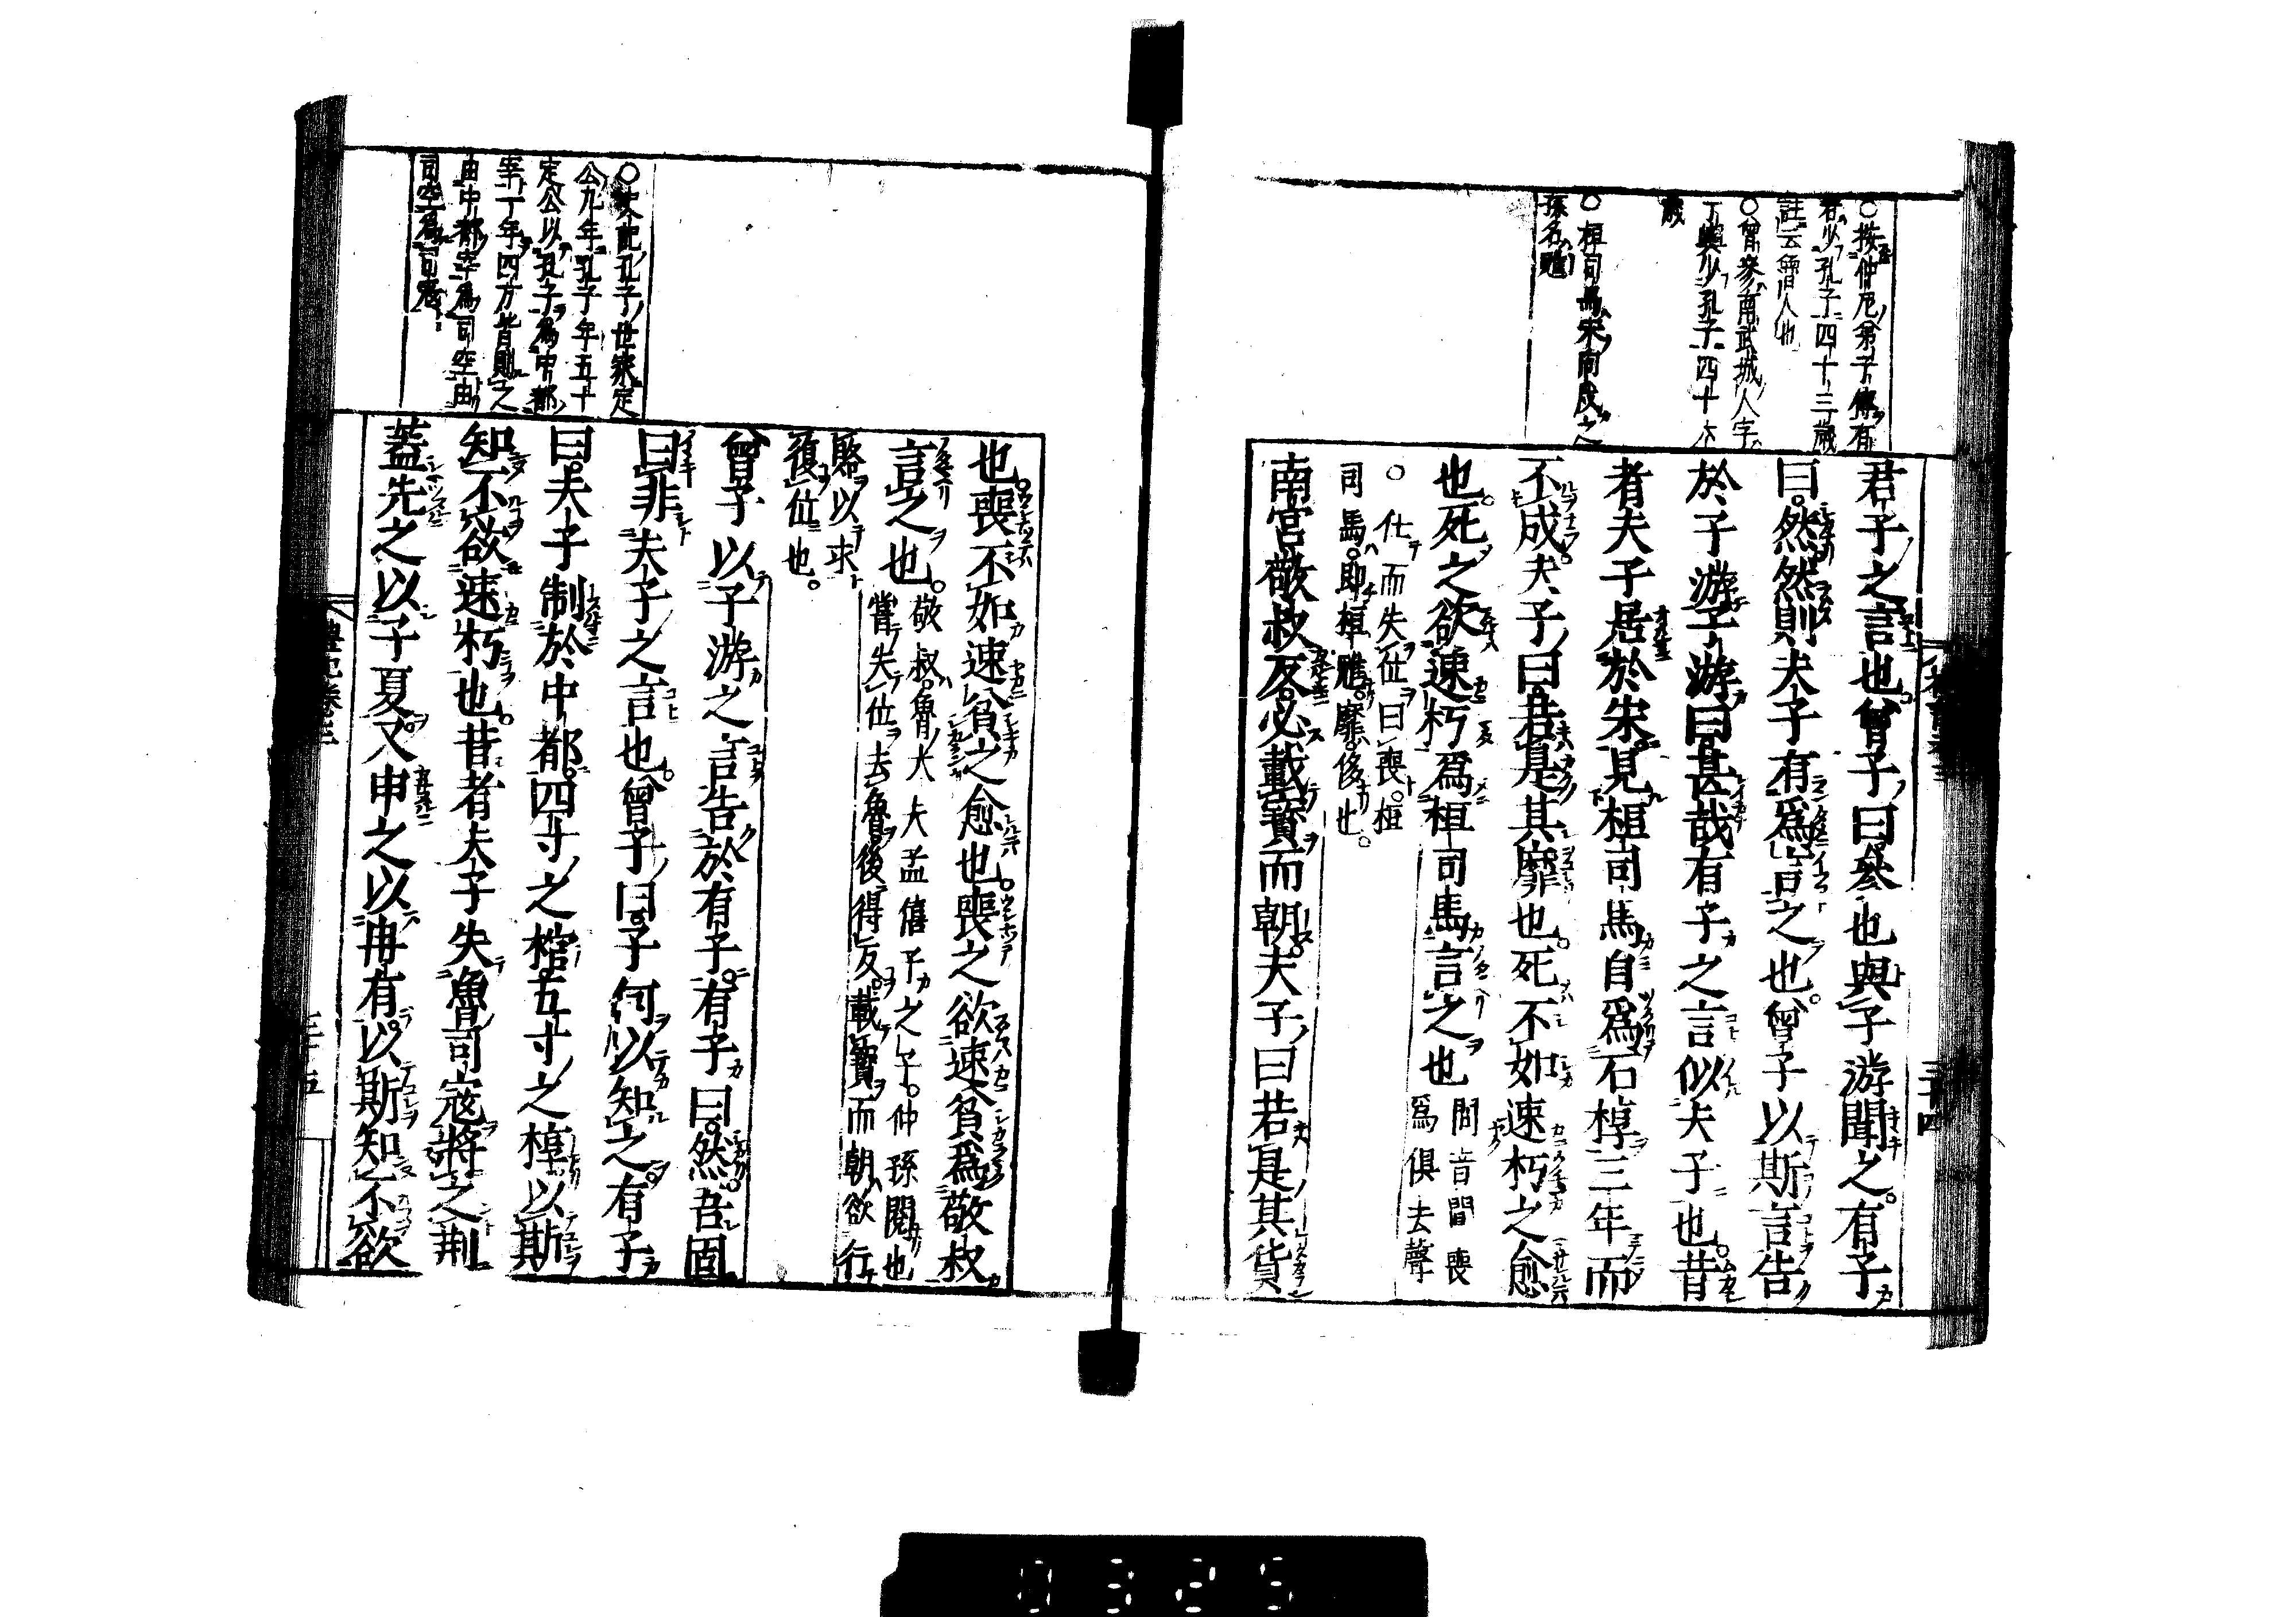 ○按仲尼弟子傳有
若少孔子四十三歲
註云魯人也
○曾參南武城人字
子輿少孔子四十六
歲
○桓司馬宋向戌之
孫名魋
君子之言也曾子曰參也與子游聞之有子
曰然然則夫子有爲言之也曾子以斯言告
於子游子游曰甚哉有子之言似夫子也昔
者夫子居於宋見桓司馬自爲石椁三年而
不成夫子曰若是其靡也死不如速朽之愈
也死之欲速朽爲桓司馬言之也
問音聞喪
爲俱去聲
○仕而失位曰喪桓
司馬即桓魋靡侈也
南宮敬叔反必載寶而朝夫子曰若是其貨
三十四
○史記孔子世家定
公九年孔子年五十
定公以孔子爲中都
宰一年四方皆則之
由中都宰爲司空由
司空爲司寇
也喪不如速貧之愈也喪之欲速貧爲敬叔
言之也
敬叔魯大夫孟僖子之子仲孫閱也
嘗失位去魯後得反載寶而朝欲行
賂以求
復位也
曾子以子游之言告於有子有子曰然吾固
曰非夫子之言也曾子曰子何以知之有子
曰夫子制於中都四寸之棺五寸之椁以斯
知不欲速朽也昔者夫子失魯司寇將之荆
蓋先之以子夏又申之以冉有以斯知不欲
禮記卷三
三十五
0325